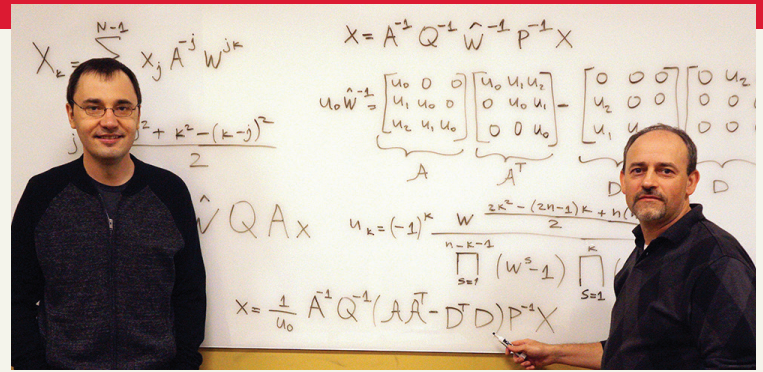 X_k = Σ^{N-1} x_j A^{-j} W^{jk}
X = A^{-1} Q^{-1} Ŵ^{-1} P^{-1} X
u_0 Ŵ^{-1} = [u_0 0 0; u_1 u_0 0; u_2 u_1 u_0] [u_0 u_1 u_2; 0 u_0 u_1; 0 0 u_0] - [0 0 0; u_2 0 0; u_1 u_2 0] [0 u_2; 0 0; 0 0
A A^T D D
j² + k² - (k-j)² / 2
Ŵ Q A x
u_k = (-1)^k W^{(2k² - (2n-1)k + n(} / 2} / ∏_{s=1}^{n-k-1} (W^s - 1) ∏_{s=1}^{k} (
X = 1/u_0 A^{-1} Q^{-1} (A A^T - D^T D) P^{-1} X